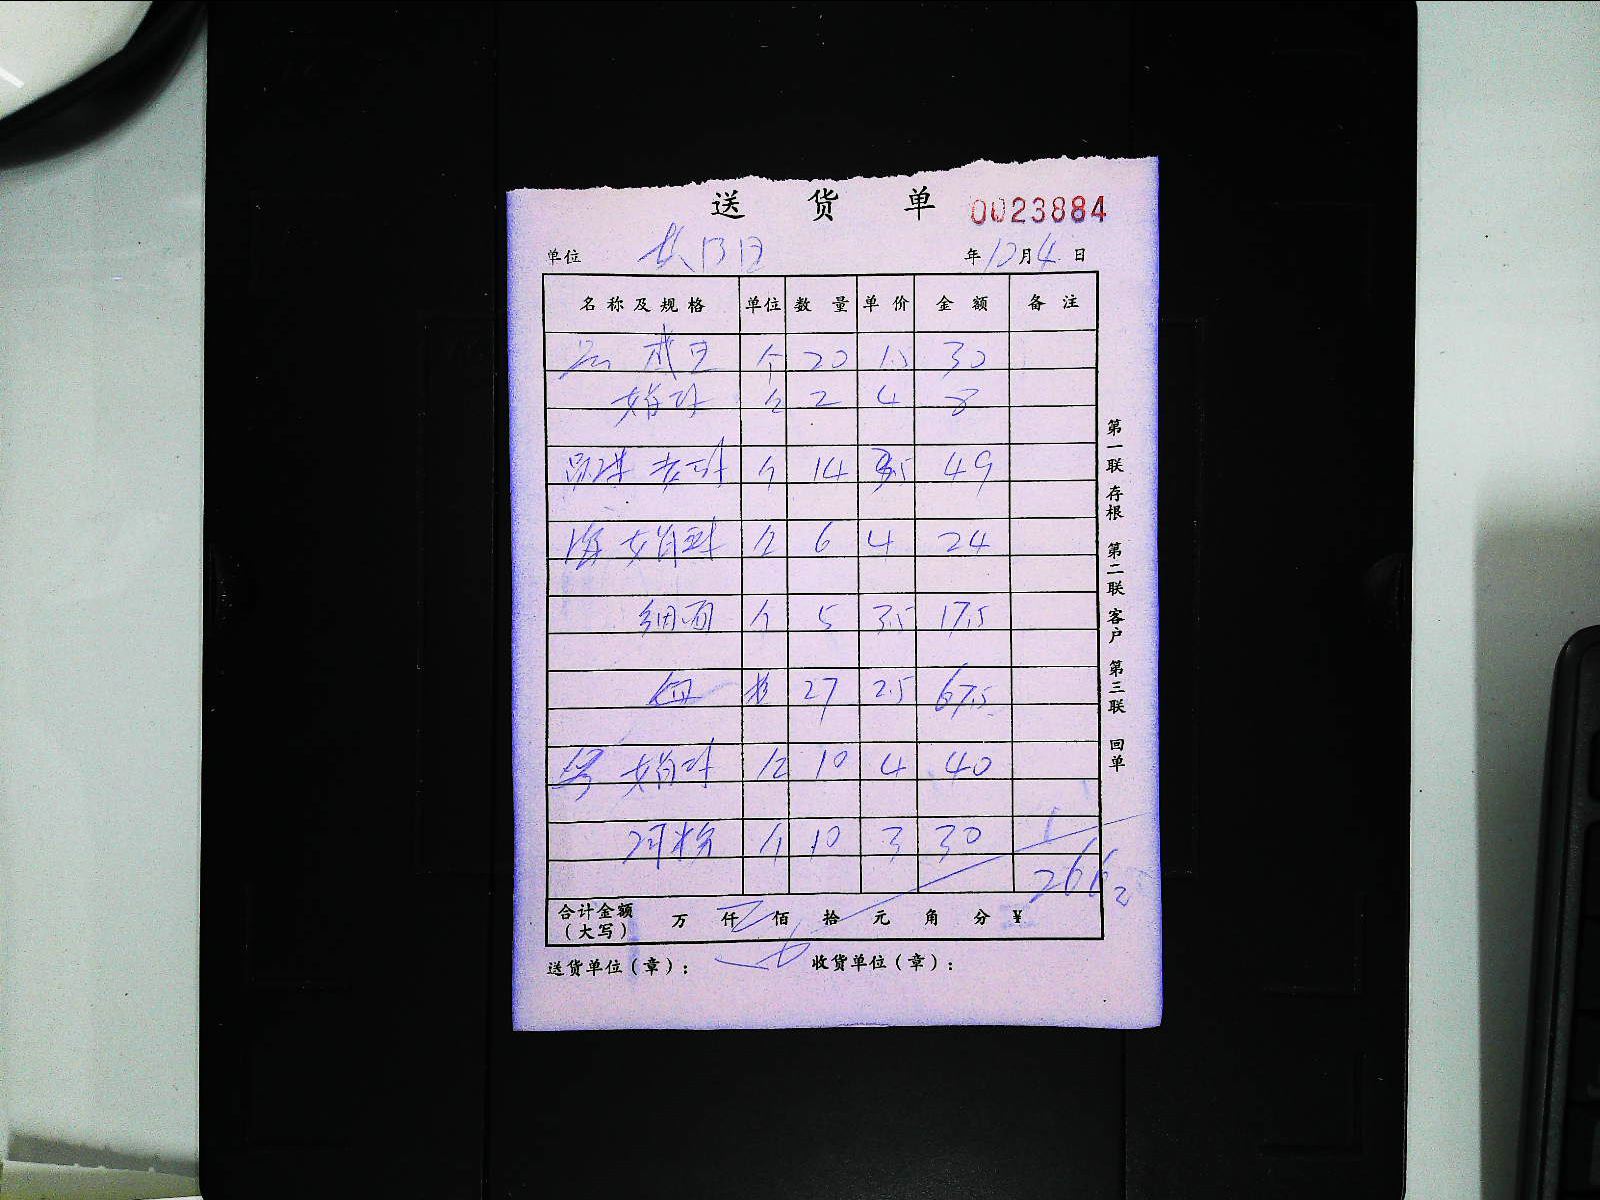 送 货 单 0023884
单位 年12月4日
名称及规格 单位 数量 单价 金额 备注
个 20 1.5 30
个 2 4 8
个 14 3.5 49
个 6 4 24
细面 个 5 3.5 17.5
血 27 2.5 67.5
个 10 4 40
河粉 个 10 3 30
266
合计金额（大写） 万 仟 佰 拾 元 角 分 ¥
送货单位（章）： 收货单位（章）：
第一联 存根 第二联 客户 第三联 回单